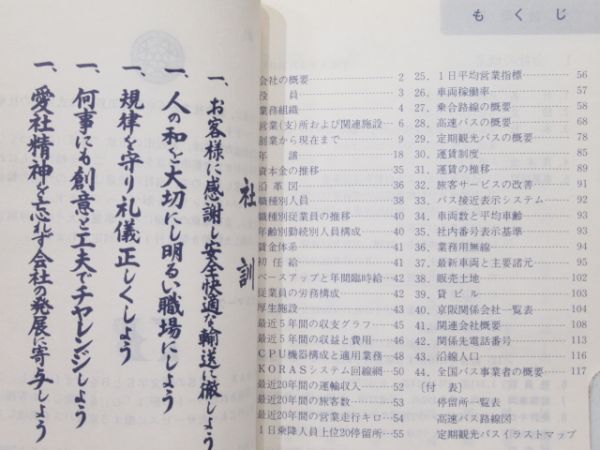 社訓
一、お客様に感謝し安全快適な輸送に徹しよう
一、人の和を大切にし明るい職場にしよう
一、規律を守り礼儀正しくしよう
一、何事にも創意と工夫でチャレンジしよう
一、愛社精神を忘れず会社の発展に寄与しよう
もくじ
会社の概要 2
役員 3
業務組織 4
営業(支)所および関連施設 6
創業から現在まで 9
年譜 18
資本金の推移 35
沿革図 36
職種別人員 38
職種別従業員の推移 40
年齢別勤続別人員構成 40
賃金体系 41
初任給 41
ベースアップと年間臨時給 42
従業員の労務構成 42
厚生施設 43
最近5年間の収支グラフ 45
最近5年間の収益と費用 46
CPU機器構成と適用業務 48
KORASシステム回線網 50
最近20年間の運輸収入 52
最近20年間の旅客数 53
最近20年間の営業走行キロ 54
1日乗降人員上位20停留所 55
25. 1日平均営業指標 56
26. 車両稼働率 57
27. 乗合路線の概要 58
28. 高速バスの概要 68
29. 定期観光バスの概要 78
30. 運賃制度 85
31. 運賃の推移 89
32. 旅客サービスの改善 91
33. バス接近表示システム 92
34. 車両数と平均車齢 93
35. 社内番号表示基準 93
36. 業務用無線 94
37. 最新車両と主要諸元 95
38. 販売土地 102
39. 貸ビル 103
40. 京阪関係会社一覧表 104
41. 関連会社概要 108
42. 関係先電話番号 113
43. 沿線人口 116
44. 全国バス事業者の概要 117
(付表)
停留所一覧表
高速バス路線図
定期観光バスイラストマップ